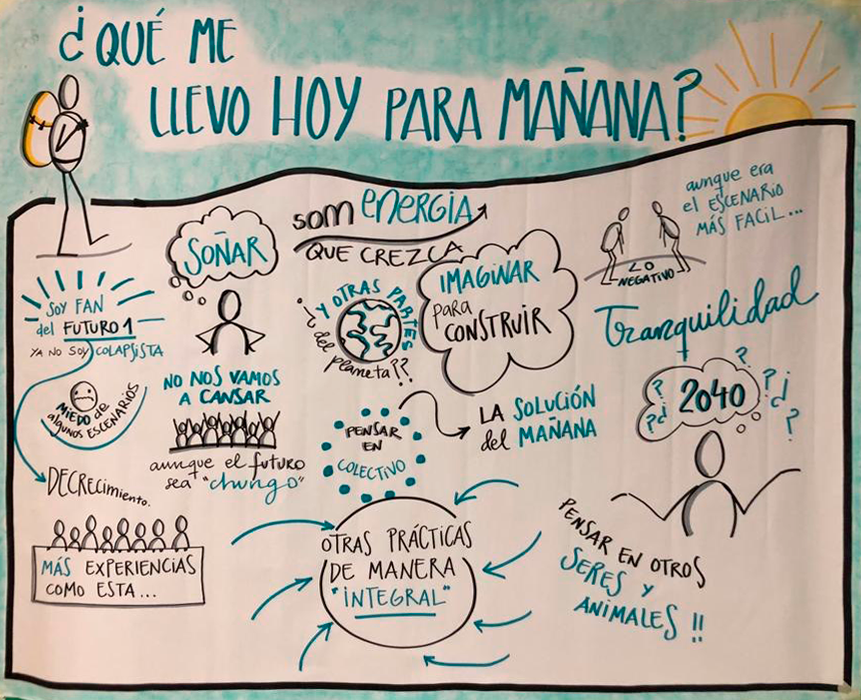 ¿QUÉ ME
LLEVO HOY PARA MAÑANA?
SOÑAR
SOM ENERGIA
QUE CREZCA
aunque era
el ESCENARIO
MÁS FACIL...
LO
NEGATIVO
SOY FAN
del FUTURO 1
YA NO SOY COLAPSISTA
MIEDO de
algunos ESCENARIOS
DECRECIMIENTO.
NO NOS VAMOS
A CANSAR
aunque el futuro
sea "chungo"
Y OTRAS PARTES
del planeta??
IMAGINAR
para
CONSTRUIR
Tranquilidad
2040
? ? ¿ ? ? ¿ ?
PENSAR
EN
COLECTIVO
LA SOLUCIÓN
del MAÑANA
MÁS EXPERIENCIAS
COMO ESTA...
OTRAS PRÁCTICAS
DE MANERA
"INTEGRAL"
PENSAR EN OTROS
SERES Y
ANIMALES!!